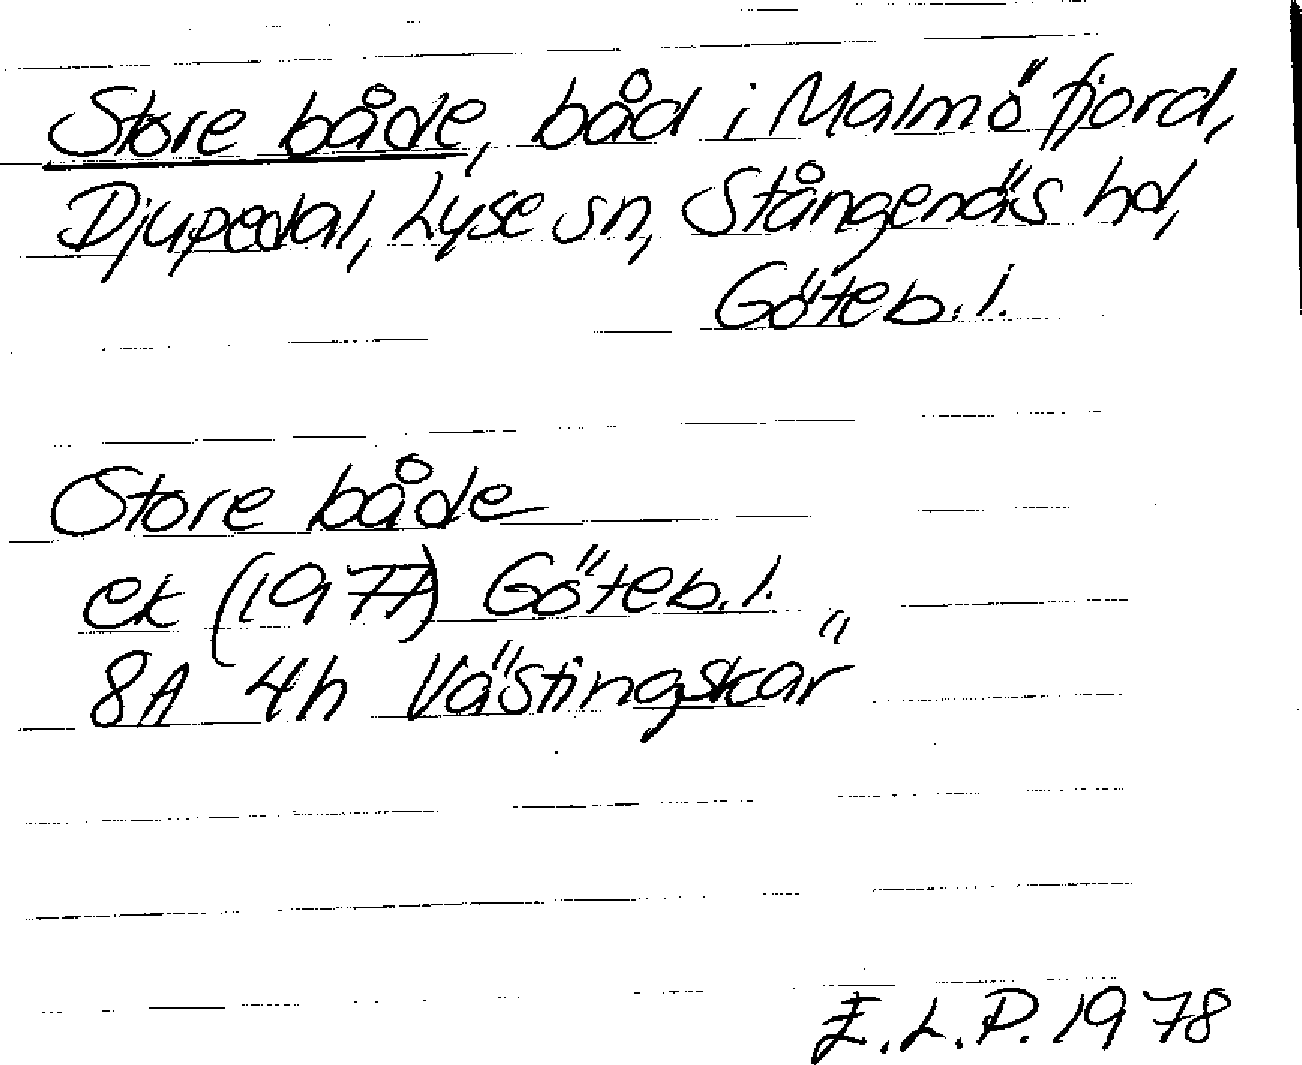 Store både, båd i Malmö fjord,
Djupedal, Lyse sn, Stångenäs hd,
Göteb. l.
Store både
ek (1977) Göteb. l.
8A 4h Västingskär
E.L.P. 1978